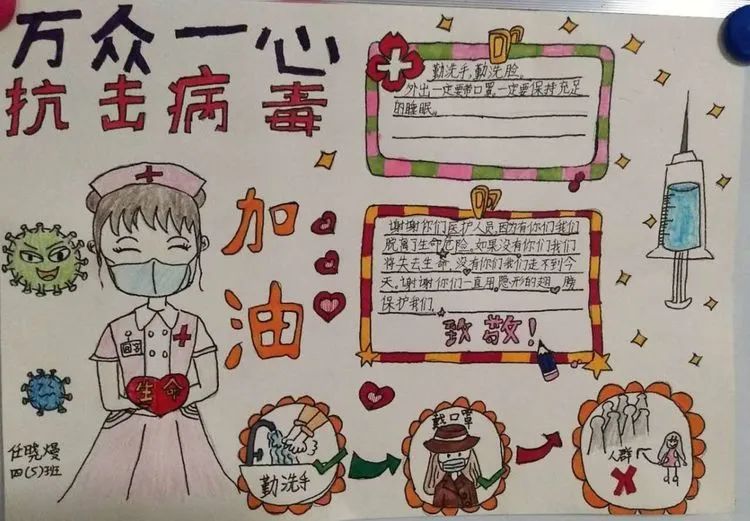 万众一心
抗击病毒
加油
勤洗手,勤洗脸。
外出一定要带口罩,一定要保持充足
的睡眠。
谢谢你们医护人员因为有你们我们
脱离了生命危险。如果没有你们我们
将失去生命,没有你们我们走不到今
天。谢谢你们一直用隐形的翅膀
保护我们。
致敬!
生命
任晓熳
四(5)班
勤洗手
戴口罩
人群